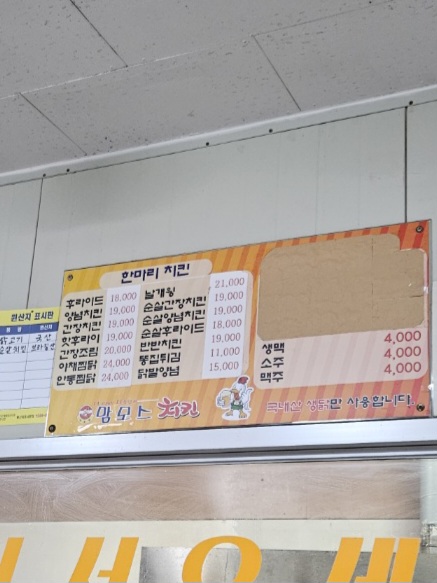 원산지 표시판
한마리 치킨
후라이드 18,000
양념치킨 19,000
간장치킨 19,000
핫후라이 19,000
간장조림 20,000
야채찜닭 24,000
안동찜닭 24,000
날개윙 21,000
순살간장치킨 19,000
순살양념치킨 19,000
순살후라이드 18,000
반반치킨 19,000
똥집튀김 11,000
닭발양념 15,000
생맥 4,000
소주 4,000
맥주 4,000
맘모스 치킨
국내산 생닭만 사용합니다.